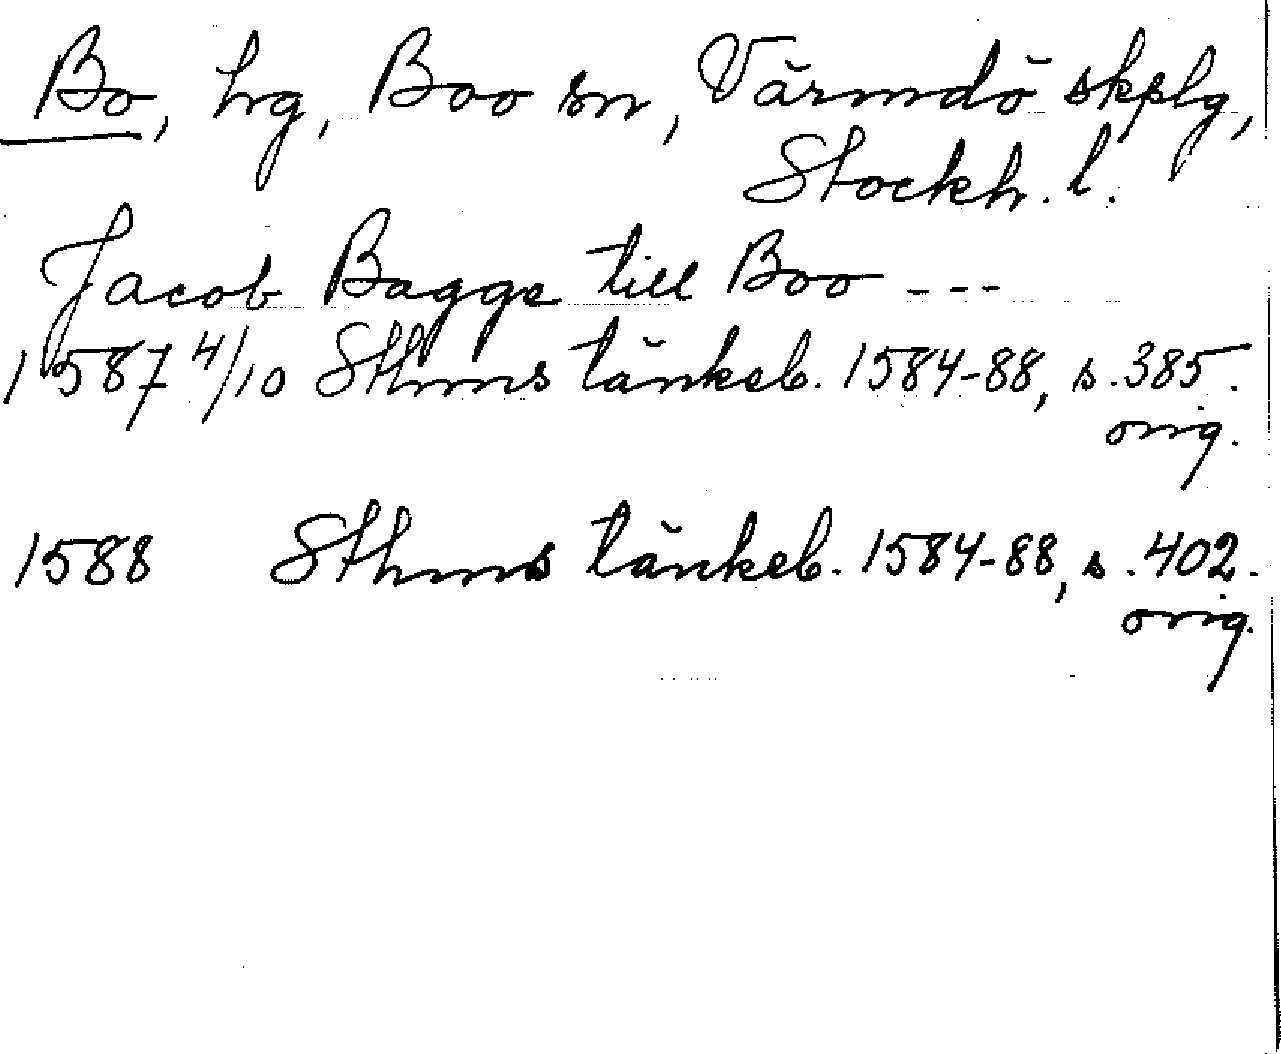 Bo, hg, Boo sn, Värmdö skplg,
Stockh. l.
Jacob Bagge till Boo ---
1587 4/10 Sthms tänkeb. 1584-88, s. 385.
orig.
1588 Sthms tänkeb. 1584-88, s. 402.
orig.